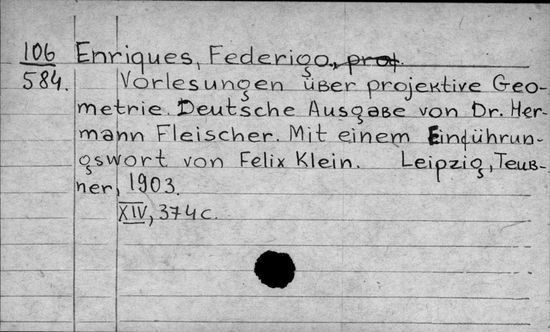 106 Enriques, Federigo., prof.
584. Vorlesungen über projektive Geo-
metrie. Deutsche Ausgabe von Dr. Her-
mann Fleischer. Mit einem Einführun-
gswort von Felix Klein. Leipzig, Teub-
ner, 1903.
XIV, 374 c.